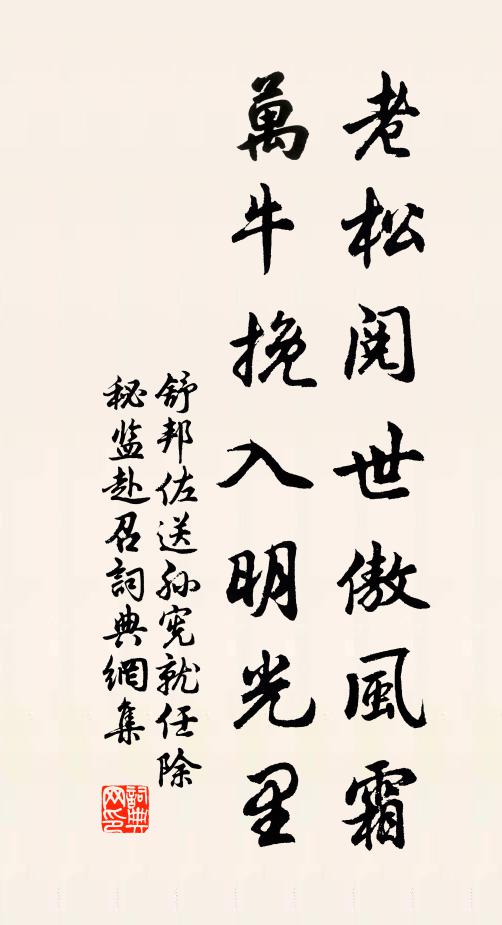 老松閱世傲風霜
萬牛挽入明光里
舒邦佐送孙宪就任除
秘监赴召詞典網集
詞典网印